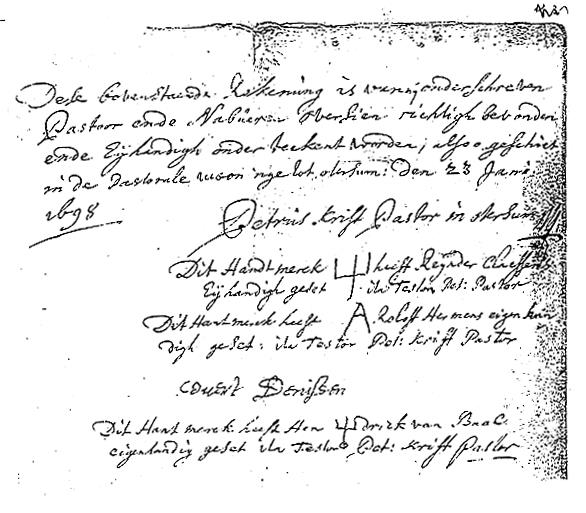 Dese bovenstaende Rekening is van onderschreven
Pastoor ende Nabueren oversien richtigh bevonden
ende Eijhandigh onder teekent worden, alsoo geschiet
in de Pastorale wooninge tot otersum: den 23 Janij
1698
Petrus Krift Pastor in otersum
Dit Handt merck heeft Reijnder Claessens
Eijhandigh geset ita Testor Pet: Pastor
Dit Hant merck heeft A Roloff Hermens eigen han
digh geset: ita Testor Pet: Krift Pastor
Covert Denissen
Dit Hant merck heeft Hendrick van Baal
eigenhandig geset ita Testor Pet: Krift Pastor